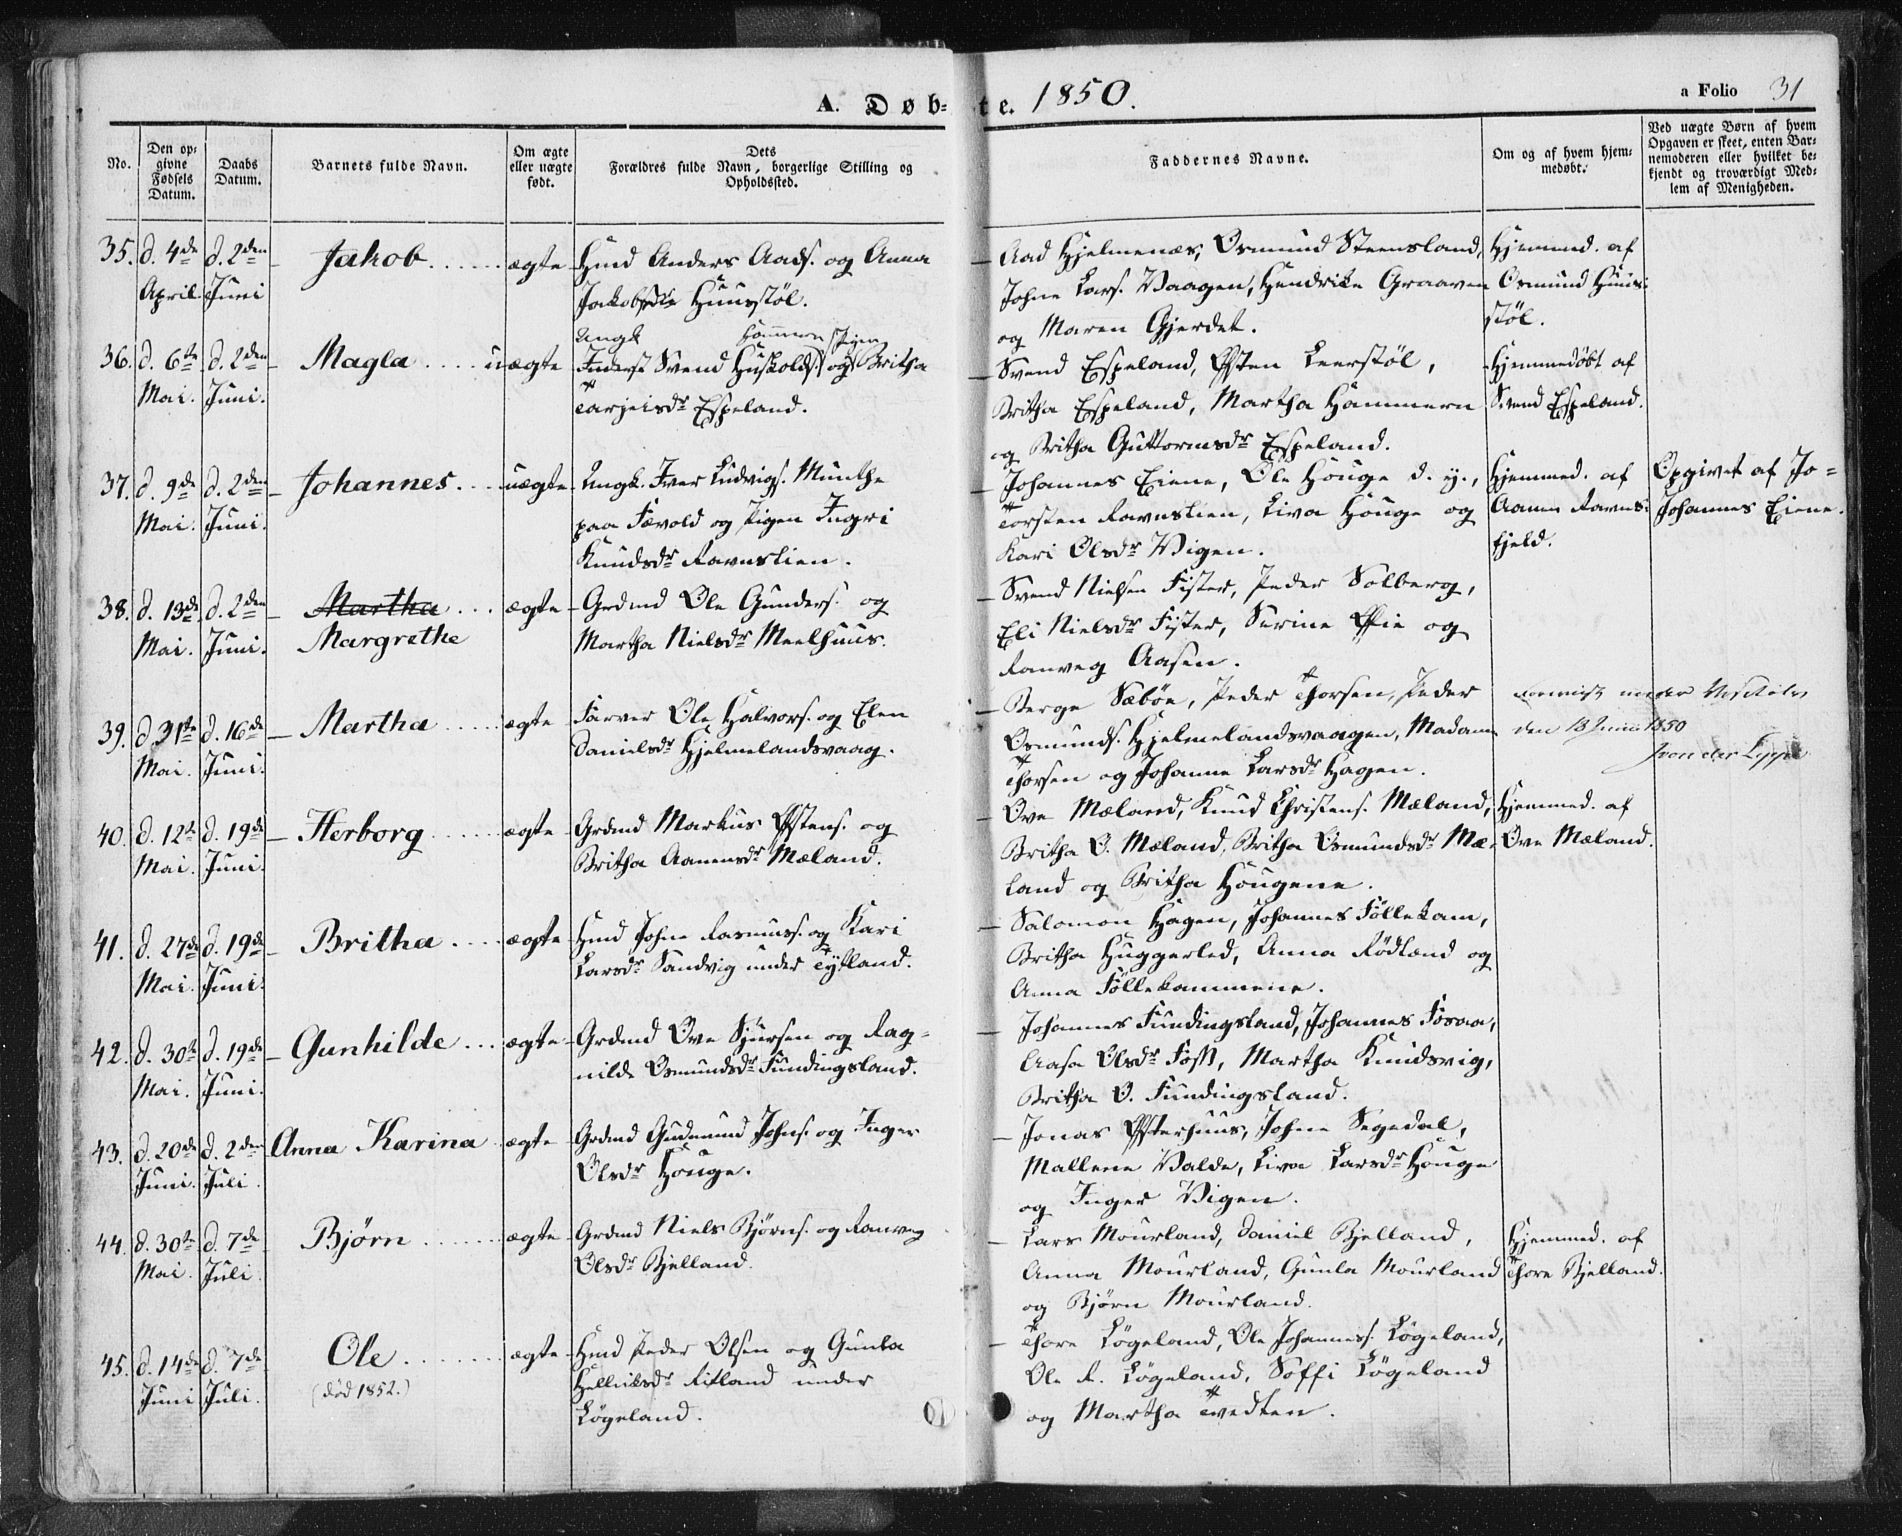 A. Døb-te. 1850.
a Folio 31
No.
Den op-
givne
Fødsels
Datum.
Daabs
Datum.
Barnets fulde Navn.
Om ægte
eller uægte
født.
Dets
Forældres fulde Navn, borgerlige Stilling og
Opholdssted.
Faddernes Navne.
Om og af hvem hjem-
medøbt.
Ved uægte Børn af hvem
Opgaven er skeet, enten Bar-
nemoderen eller hvilket be-
kjendt og troværdigt Med-
lem af Menigheden.
35. d. 4de April. d. 2den Juni Jakob ægte
Hmd Anders Aads. og Anna
Jakobsdr Huusstöl.
Aad Hjelmenæs, Osmund Steensland,
Johne Lars. Vaagen, Hendrike Graaven
og Maren Gjerdet.
Hjemmed. af
Osmund Huus-
stöl.
36. d. 6te Mai. d. 2den Juni. Magla uægte
Ungk Hammeren Pigen
Inderst Svend Huskolds. og Britha
Tarjeisdr Espeland.
Svend Espeland, Østen Leerstöl,
Britha Espeland, Martha Hammern
og Britha Guttormsdr Espeland.
Hjemmedøbt af
Svend Espeland.
37. d. 9de Mai. d. 2den Juni. Johannes uægte
Ungk. Iver Ludvigs. Munthe
paa Fævold og Pigen Ingri
Knudsdr Ravnslien.
Johannes Eiene, Ole Houge d. y.,
Torsten Ravnslien, Liva Houge og
Kari Olsdr Vigen.
Hjemmed. af
Aanen Ravns-
fjeld.
Opgivet af Jo-
Johannes Eiene.
38. d. 13de Mai. d. 2den Juni. Martha ægte
Margrethe
Grdmd Ole Gunders. og
Martha Nielsdr Meelhuus.
Svend Nielsen Fister, Peder Solberg,
Eli Nielsdr Fister, Serine Øie og
Ranveg Aasen.
39. d 31te Mai. d. 16de Juni. Martha ægte
Farver Ole Halvors. og Elen
Danielsdr Hjelmelandsvaag.
Berge Sæböe, Peder Thorsen, Peder
Osmunds. Hjelmelandsvaagen, Madam
Thorsen og Johanne Larsdr Hagen.
den 18 Juni 1850
von der Lippe
40. d. 12te Mai. d. 19de Juni. Herborg ægte
Grdmd Markus Østens. og
Britha Aanensdr Mæland.
Ove Mæland, Knud Christens. Mæland,
Britha O. Mæland, Britha Osmundsdr Mæ-
land og Britha Hougene.
Hjemmed. af
Ove Mæland.
41. d. 27de Mai. d. 19de Juni. Britha ægte
Hmd Johne Rasmuss. og Kari
Larsdr Sandvig under Tytland.
Salomon Hagen, Johannes Föllekam,
Britha Huggerled, Anna Rödland og
Anna Föllekammene.
42. d. 30te Mai. d. 19de Juni. Gunhilde ægte
Grdmd Ove Sjursen og Rag-
nilde Osmundsdr Fundingsland.
Johannes Fundingsland, Johannes Fosaa,
Aasa Olsdr Foss, Martha Knudsvig,
Britha O. Fundingsland.
43. d. 20de Juni. d. 2den Juli. Anna Karina ægte
Grdmd Gudmund Johns. og Inger
Olsdr Houge.
Jonas Østerhuus, Johne Segedal,
Mallene Valde, Liva Larsdr Houge
og Inger Vigen.
44. d. 30te Mai. d. 7de Juli. Bjørn ægte
Grdmd Niels Bjørns. og Ranveg
Olsdr Bjelland.
Lars Mourland, Daniel Bjelland,
Anna Mourland, Gunla Mourland
og Bjørn Mourland.
Hjemmed. af
Thore Bjelland.
45. d. 14de Juni d. 7de Juli. Ole ægte
(død 1852.)
Hmd Peder Olsen og Gunla
Helliksdr Ritland under
Lögeland.
Thore Lögeland, Ole Johanness. Lögeland,
Ole R. Lögeland, Soffi Lögeland
og Martha Tvedten.